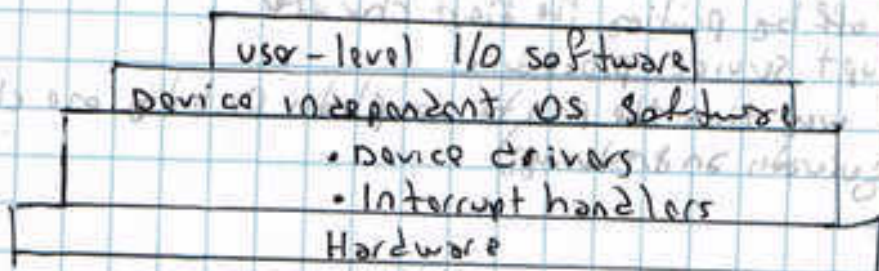 user-level I/O software
Device independent OS software
• Device drivers
• Interrupt handlers
Hardware